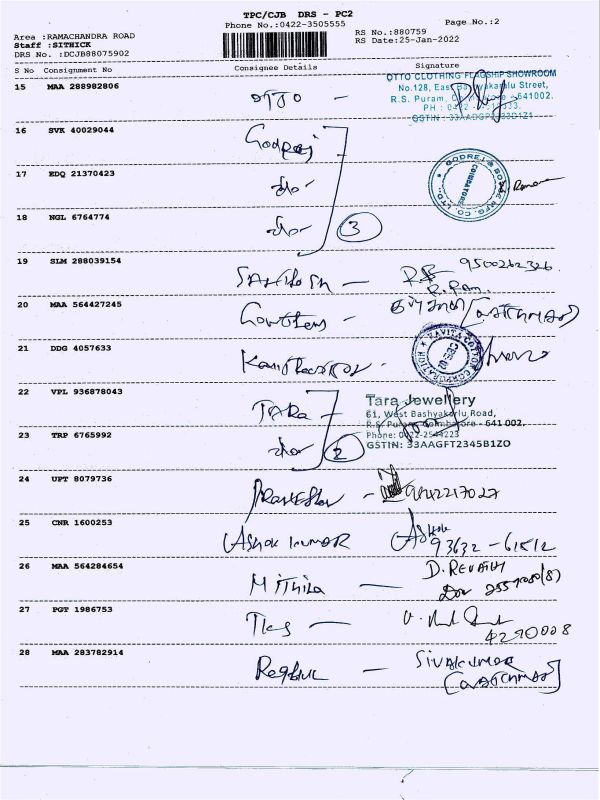 TPC/CJB DRS - PC2
Phone No.:0422-3505555
Page No.:2
Area :RAMACHANDRA ROAD
RS No.:880759
Staff :SITHICK
RS Date:25-Jan-2022
DRS No. :DCJB88075902
S No Consignment No Consignee Details Signature
15 MAA 288982806 OTTO -
OTTO CLOTHING FLAGSHIP SHOWROOM
No.128, East Street,
R.S. Puram, - 641002.
16 SVK 40029044 Godrej
17 EDQ 21370423 do-
GODREJ & BOYCE MFG. CO. LTD.
COIMBATORE
18 NGL 6764774 do- 3
19 SLM 288039154 SANTHOSH - 9500262326
R. Ram.
20 MAA 564427245 Gowthem - [WATCHMAN]
21 DDG 4057633
KAVITA COTTON CORPORATION
22 VPL 936878043 TARA -
Tara Jewellery
61, West Bashyakarlu Road,
R.S. Puram, Coimbatore - 641 002.
23 TRP 6765992 do- 2
Phone: 0422-2544223
GSTIN: 33AAGFT2345B1ZO
24 UPT 8079736 - 9442217027
25 CNR 1600253 ASHOK KUMAR Ashok
93632-61512
26 MAA 564284654 Mithila - D. REVATHI
27 PGT 1986753 TKS -
4290008
28 MAA 283782914 - SIVAKUMAR
[WATCHMAN]